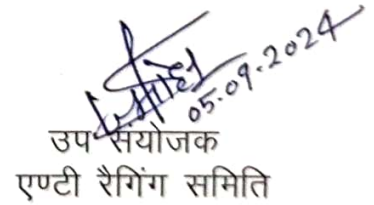 05.09.2024
उप संयोजक
एण्टी रैगिंग समिति